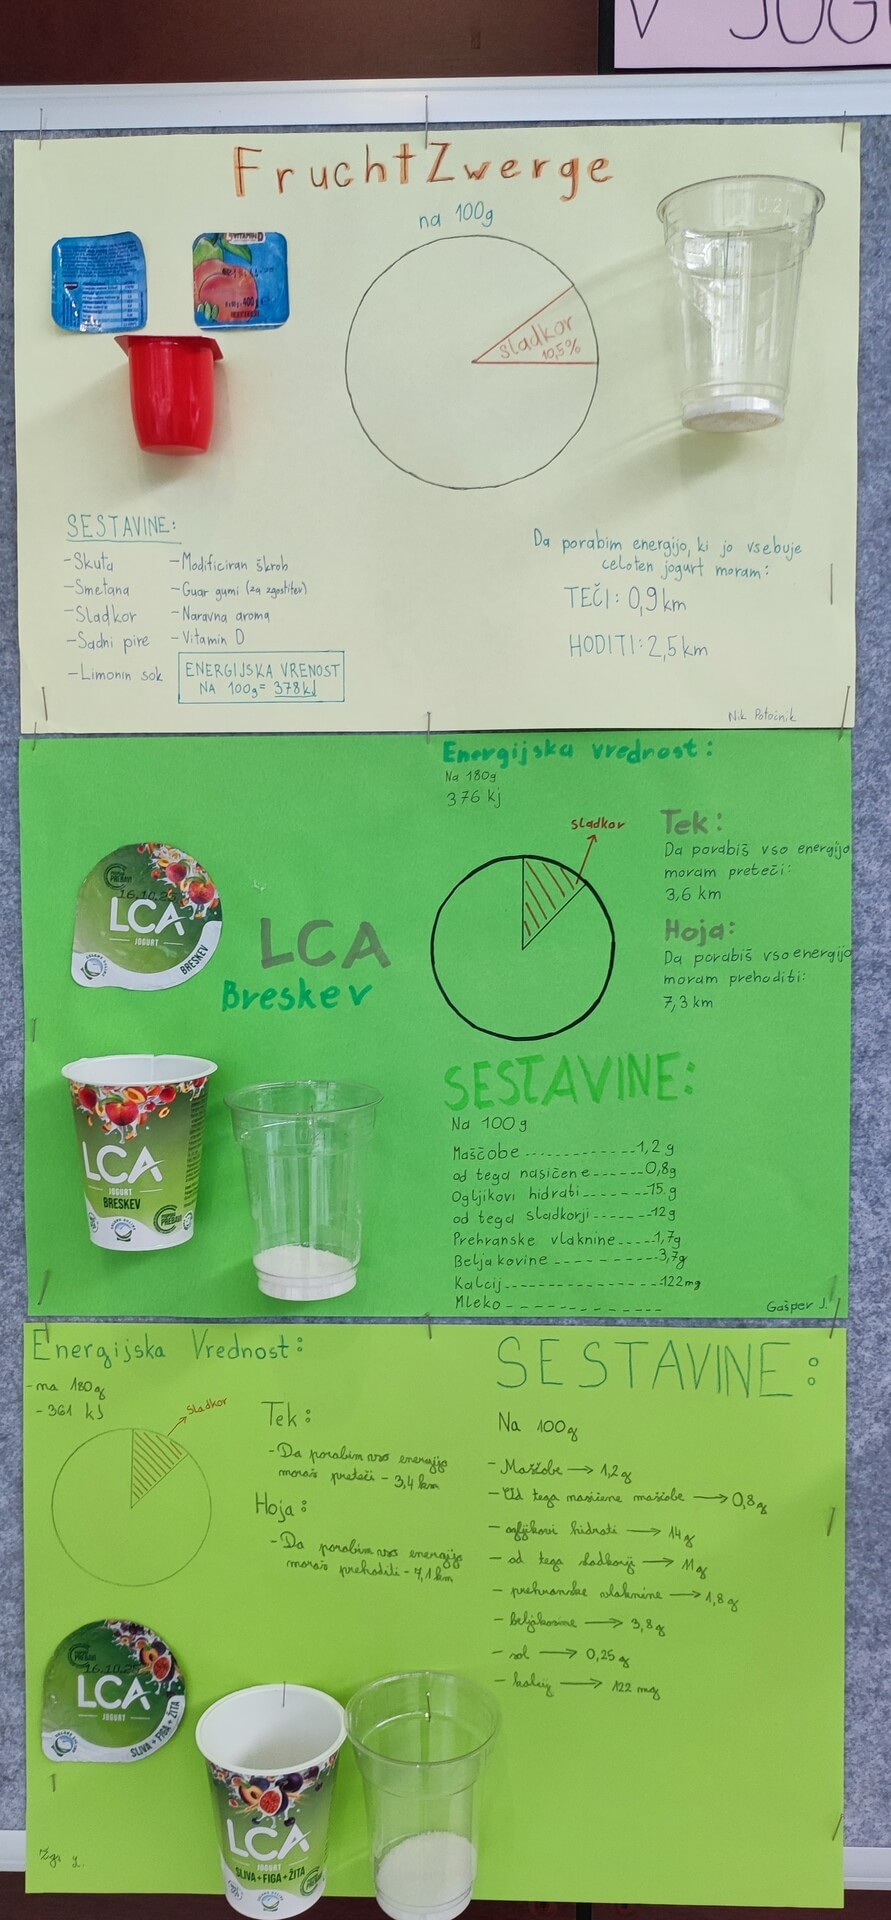 V JOGU
FruchtZwerge
na 100g
sladkor
10,5%
0.2l
VITAMIN D
400 g
SESTAVINE:
-Skuta
-Smetana
-Sladkor
-Sadni pire
-Limonin sok
-Modificiran škrob
-Guar gumi (za zgostitev)
-Naravna aroma
-Vitamin D
ENERGIJSKA VRENOST
NA 100g= 378kJ
Da porabim energijo, ki jo vsebuje
celoten jogurt moram:
TEČI: 0,9km
HODITI: 2,5km
Nik Potočnik
Energijska vrednost:
Na 180g
376 kj
sladkor
Tek:
Da porabiš vso energijo
moram preteči:
3,6 km
Hoja:
Da porabiš vso energijo
moram prehoditi:
7,3 km
PREBAVI
16.10.23
LCA
JOGURT
BRESKEV
LCA
Breskev
LCA
JOGURT
BRESKEV
PREBAVI
SESTAVINE:
Na 100g
Maščobe ------------1,2 g
od tega nasičene------0,8g
Ogljikovi hidrati-------15 g
od tega sladkorji------12g
Prehranske vlaknine----1,7g
Beljakovine -----------3,7g
Kalcij----------------122mg
Mleko-----------------
Gašper J.
Energijska Vrednost:
-na 180g
-361 kJ
sladkor
Tek:
-Da porabim vso energijo
moraš preteči - 3,4 km
Hoja:
-Da porabim vso energijo
moraš prehoditi - 7,1 km
SESTAVINE:
Na 100g
- Maščobe → 1,2 g
- Od tega nasičene maščobe → 0,8 g
- ogljikovi hidrati → 14 g
- od tega sladkorji → 11g
- prehranske vlaknine → 1,8 g
- beljakovine → 3,8 g
- sol → 0,25 g
- kalcij → 122 mg
PREBAVI
LCA
JOGURT
SLIVA + FIGA + ŽITA
LCA
JOGURT
SLIVA + FIGA + ŽITA
Žiga